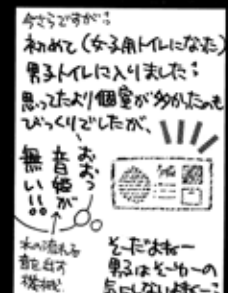 今さらですが:
初めて(女子用トイレになった)
男子トイレに入りました:
思ってたより個室が多かったのも
びっくりでしたが、
おおっ
音姫が
無い!!
水の流れる
音を出す
機械
そーだよねー
男子はそーゆーの
気にしないよねー: